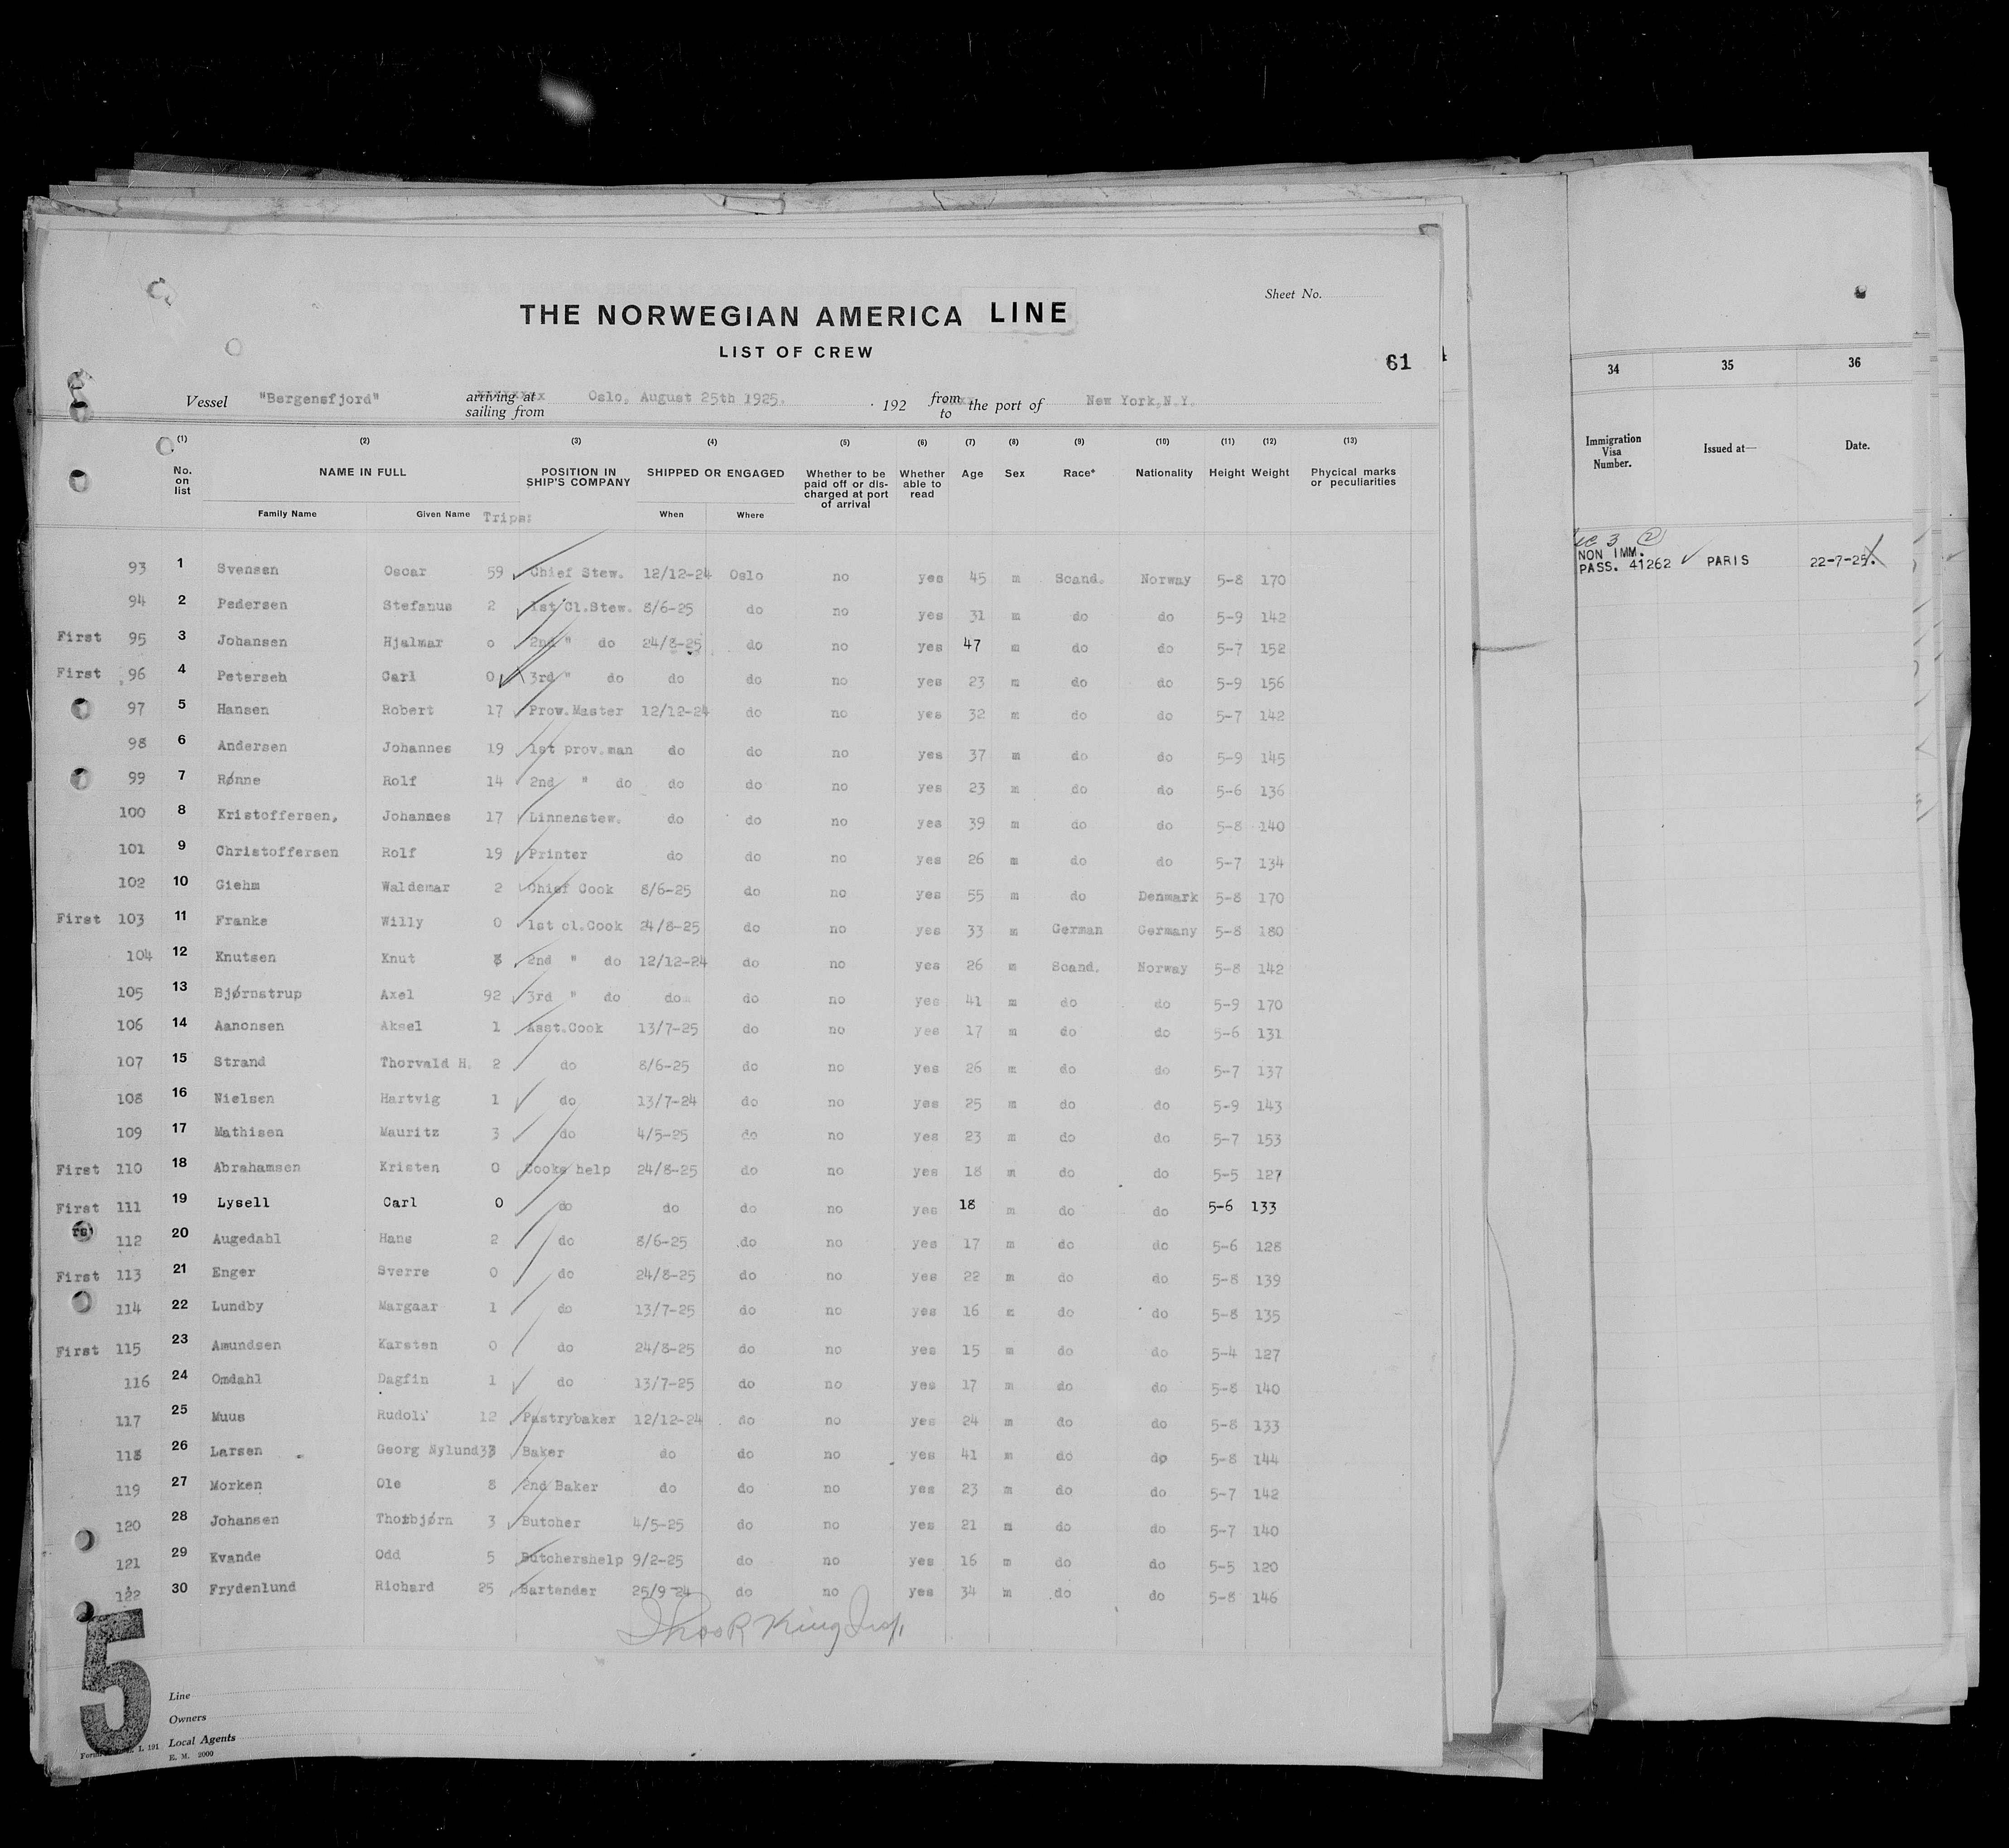 Sheet No.
THE NORWEGIAN AMERICA LINE
LIST OF CREW
61
Vessel "Bergensfjord" arriving at sailing from Oslo, August 25th 1925. 192 from to the port of New York,N.Y.
(1) (2) (3) (4) (5) (6) (7) (8) (9) (10) (11) (12) (13)
No. on list NAME IN FULL POSITION IN SHIP'S COMPANY SHIPPED OR ENGAGED Whether to be paid off or discharged at port of arrival Whether able to read Age Sex Race* Nationality Height Weight Phycical marks or peculiarities
Family Name Given Name Trips: When Where
93 1 Svensen Oscar 59 Chief Stew. 12/12-24 Oslo no yes 45 m Scand. Norway 5-8 170
94 2 Pedersen Stefanus 2 1st Cl.Stew. 8/6-25 do no yes 31 m do do 5-9 142
First 95 3 Johansen Hjalmar o 2nd " do 24/8-25 do no yes 47 m do do 5-7 152
First 96 4 Petersen Carl 0 3rd " do do do no yes 23 m do do 5-9 156
97 5 Hansen Robert 17 Prov.Master 12/12-24 do no yes 32 m do do 5-7 142
98 6 Andersen Johannes 19 1st prov.man do do no yes 37 m do do 5-9 145
99 7 Rønne Rolf 14 2nd " do do do no yes 23 m do do 5-6 136
100 8 Kristoffersen, Johannes 17 Linnenstew. do do no yes 39 m do do 5-8 140
101 9 Christoffersen Rolf 19 Printer do do no yes 26 m do do 5-7 134
102 10 Giehm Waldemar 2 Chief Cook 8/6-25 do no yes 55 m do Denmark 5-8 170
First 103 11 Franke Willy 0 1st cl.Cook 24/8-25 do no yes 33 m German Germany 5-8 180
104 12 Knutsen Knut 8 2nd " do 12/12-24 do no yes 26 m Scand. Norway 5-8 142
105 13 Bjørnstrup Axel 92 3rd " do do do no yes 41 m do do 5-9 170
106 14 Aanonsen Aksel 1 Asst.Cook 13/7-25 do no yes 17 m do do 5-6 131
107 15 Strand Thorvald H. 2 do 8/6-25 do no yes 26 m do do 5-7 137
108 16 Nielsen Hartvig 1 do 13/7-24 do no yes 25 m do do 5-9 143
109 17 Mathisen Mauritz 3 do 4/5-25 do no yes 23 m do do 5-7 153
First 110 18 Abrahamsen Kristen 0 Cooks help 24/8-25 do no yes 18 m do do 5-5 127
First 111 19 Lysell Carl 0 do do do no yes 18 m do do 5-6 133
112 20 Augedahl Hans 2 do 8/6-25 do no yes 17 m do do 5-6 128
First 113 21 Enger Sverre 0 do 24/8-25 do no yes 22 m do do 5-8 139
114 22 Lundby Margaar 1 do 13/7-25 do no yes 16 m do do 5-8 135
First 115 23 Amundsen Karsten 0 do 24/8-25 do no yes 15 m do do 5-4 127
116 24 Omdahl Dagfin 1 do 13/7-25 do no yes 17 m do do 5-8 140
117 25 Muus Rudolf 12 Pastrybaker 12/12-24 do no yes 24 m do do 5-8 133
118 26 Larsen Georg Nylund 33 Baker do do no yes 41 m do do 5-8 144
119 27 Morken Ole 8 2nd Baker do do no yes 23 m do do 5-7 142
120 28 Johansen Thorbjørn 3 Butcher 4/5-25 do no yes 21 m do do 5-7 140
121 29 Kvande Odd 5 Butchershelp 9/2-25 do no yes 16 m do do 5-5 120
122 30 Frydenlund Richard 25 Bartender 25/9-24 do no yes 34 m do do 5-8 146
Thos R King Insp.
5
Line
Owners
Local Agents
E. M. 2000
34 35 36
Immigration Visa Number. Issued at— Date.
NON IMM.
PASS. 41262 PARIS 22-7-25.